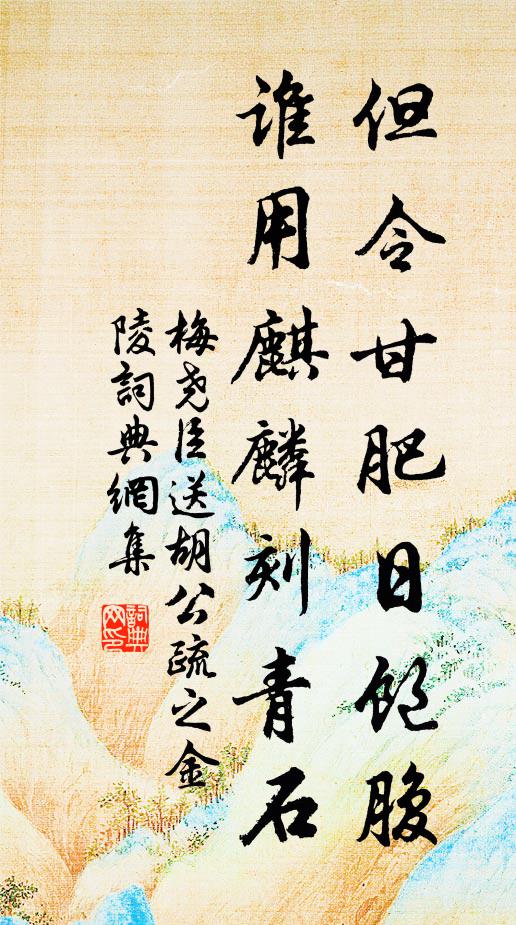 但令甘肥日飽腹
誰用麒麟刻青石
梅尧臣送胡公疏之金
陵詞典網集